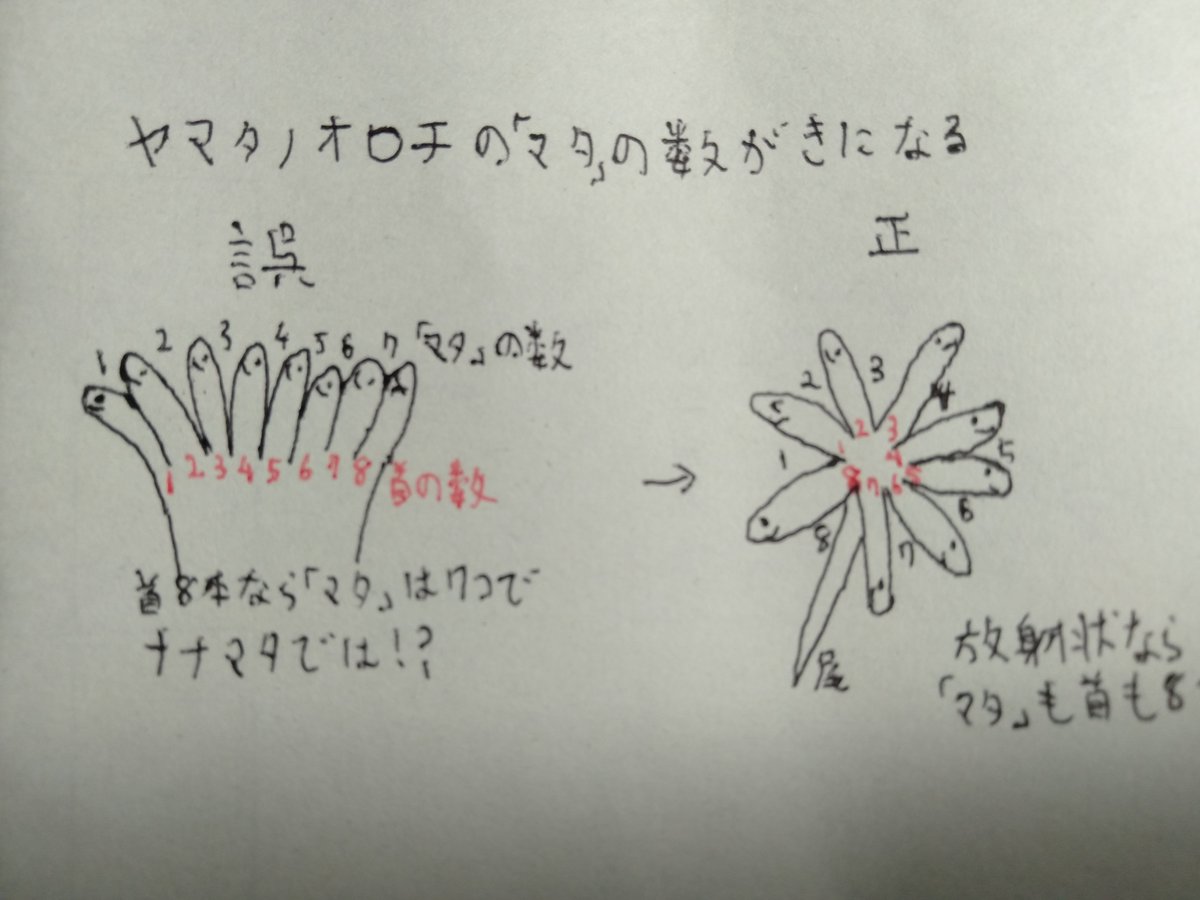 ヤマタノオロチの「マタ」の数がきになる
誤
1 2 3 4 5 6 7 「マタ」の数
1 2 3 4 5 6 7 8 首の数
首8本なら「マタ」は7つで
ナナマタでは!?
→
正
1 2 3 4 5 6 7 8
1 2 3 4 5 6 7 8
尾
放射状なら
「マタ」も首も8